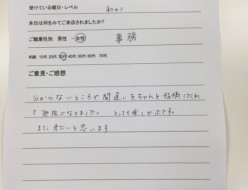 受けている曜日・レベル 初中1
本日は何をみてご来店されましたか?
ご職業性別: 男性 ・ 女性 事務
年齢: 10代 20代 30代 40代 50代 60代 70代
ご意見・ご感想
分からないところや間違いをちゃんと指摘してくれ
て勉強になりました。 とても楽しかったです。
また来たいと思います